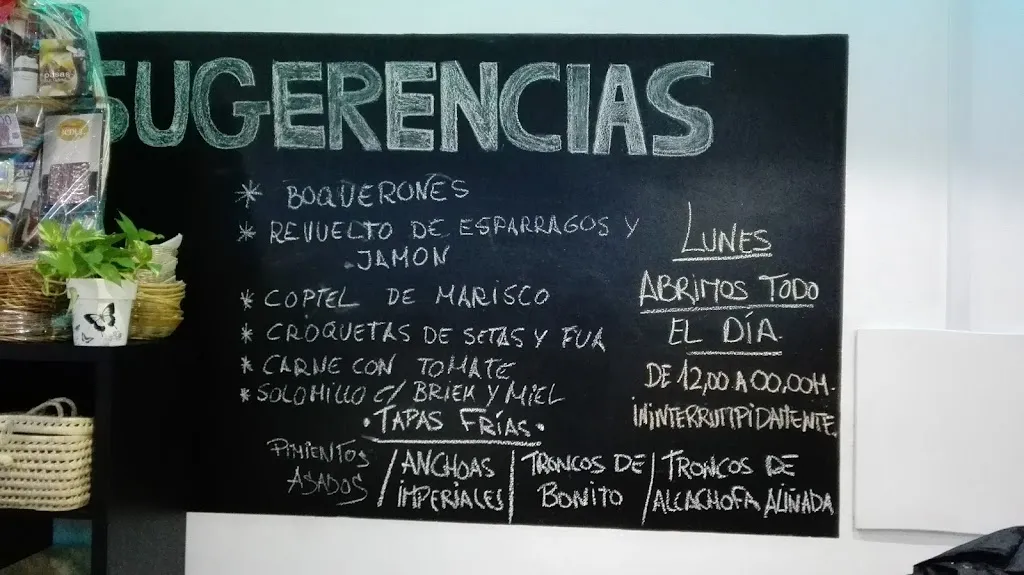 SUGERENCIAS
* BOQUERONES
* REVUELTO DE ESPARRAGOS Y
JAMON
* COPTEL DE MARISCO
* CROQUETAS DE SETAS Y FUA
* CARNE CON TOMATE
* SOLOMILLO C/ BRIEK Y MIEL
· TAPAS FRÍAS ·
PIMIENTOS
ASADOS
/ ANCHOAS
IMPERIALES
| TRONCOS DE
BONITO
/ TRONCOS DE
ALCACHOFA ALIÑADA
LUNES
ABRIMOS TODO
EL DÍA.
DE 12,00 A 00,00H.
ININTERRUMPIDAMENTE.